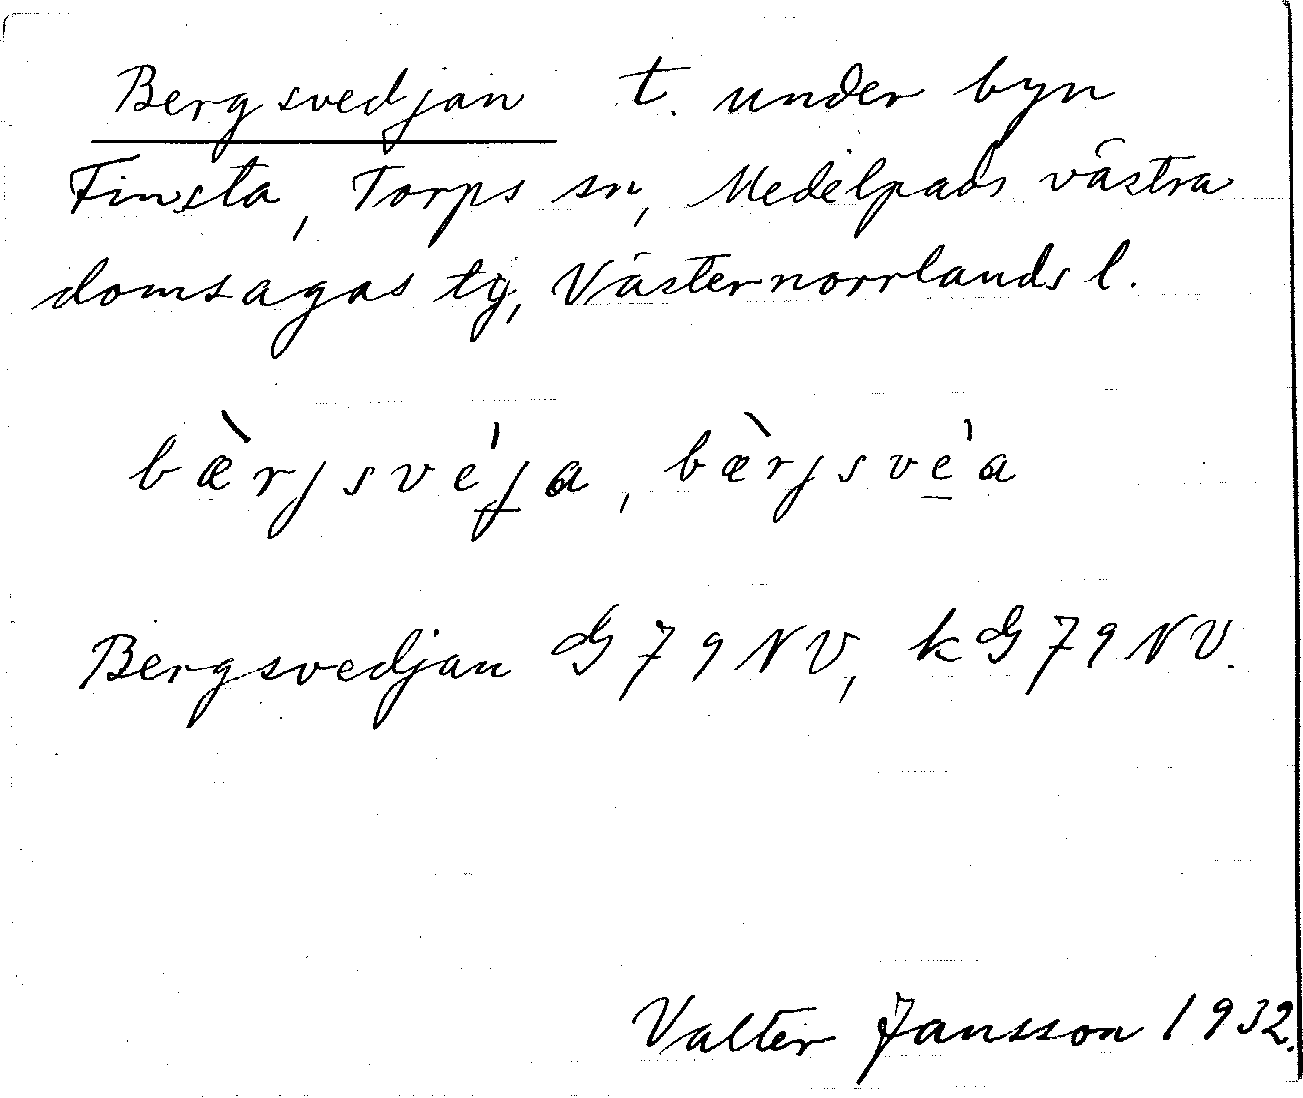 Bergsvedjan t. under byn
Finsta, Torps sn, Medelpads västra
domsagas tg, Västernorrlands l.
bæ̀rjsve̍ja, bæ̀rjsve̍a
Bergsvedjan G 79 NV, kG 79 NV.
Valter Jansson 1932.